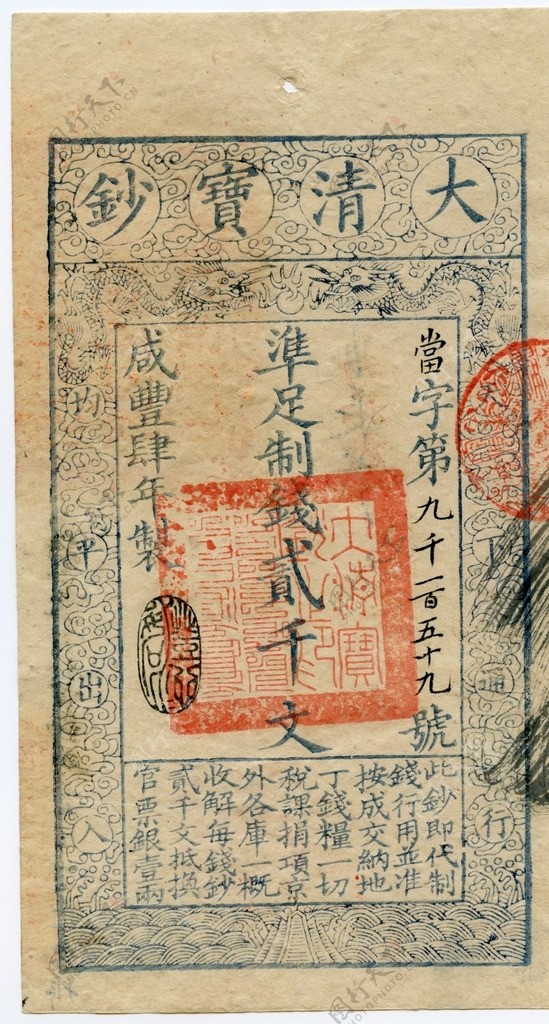 大清寶鈔
天下通行
當字第九千一百五十九號
準足制錢貳千文
咸豐肆年製
均平出入
此鈔即代制
錢行用並准
按成交納地
丁錢糧一切
稅課捐項京
外各庫一概
收解每錢鈔
貳千文抵換
官票銀壹兩